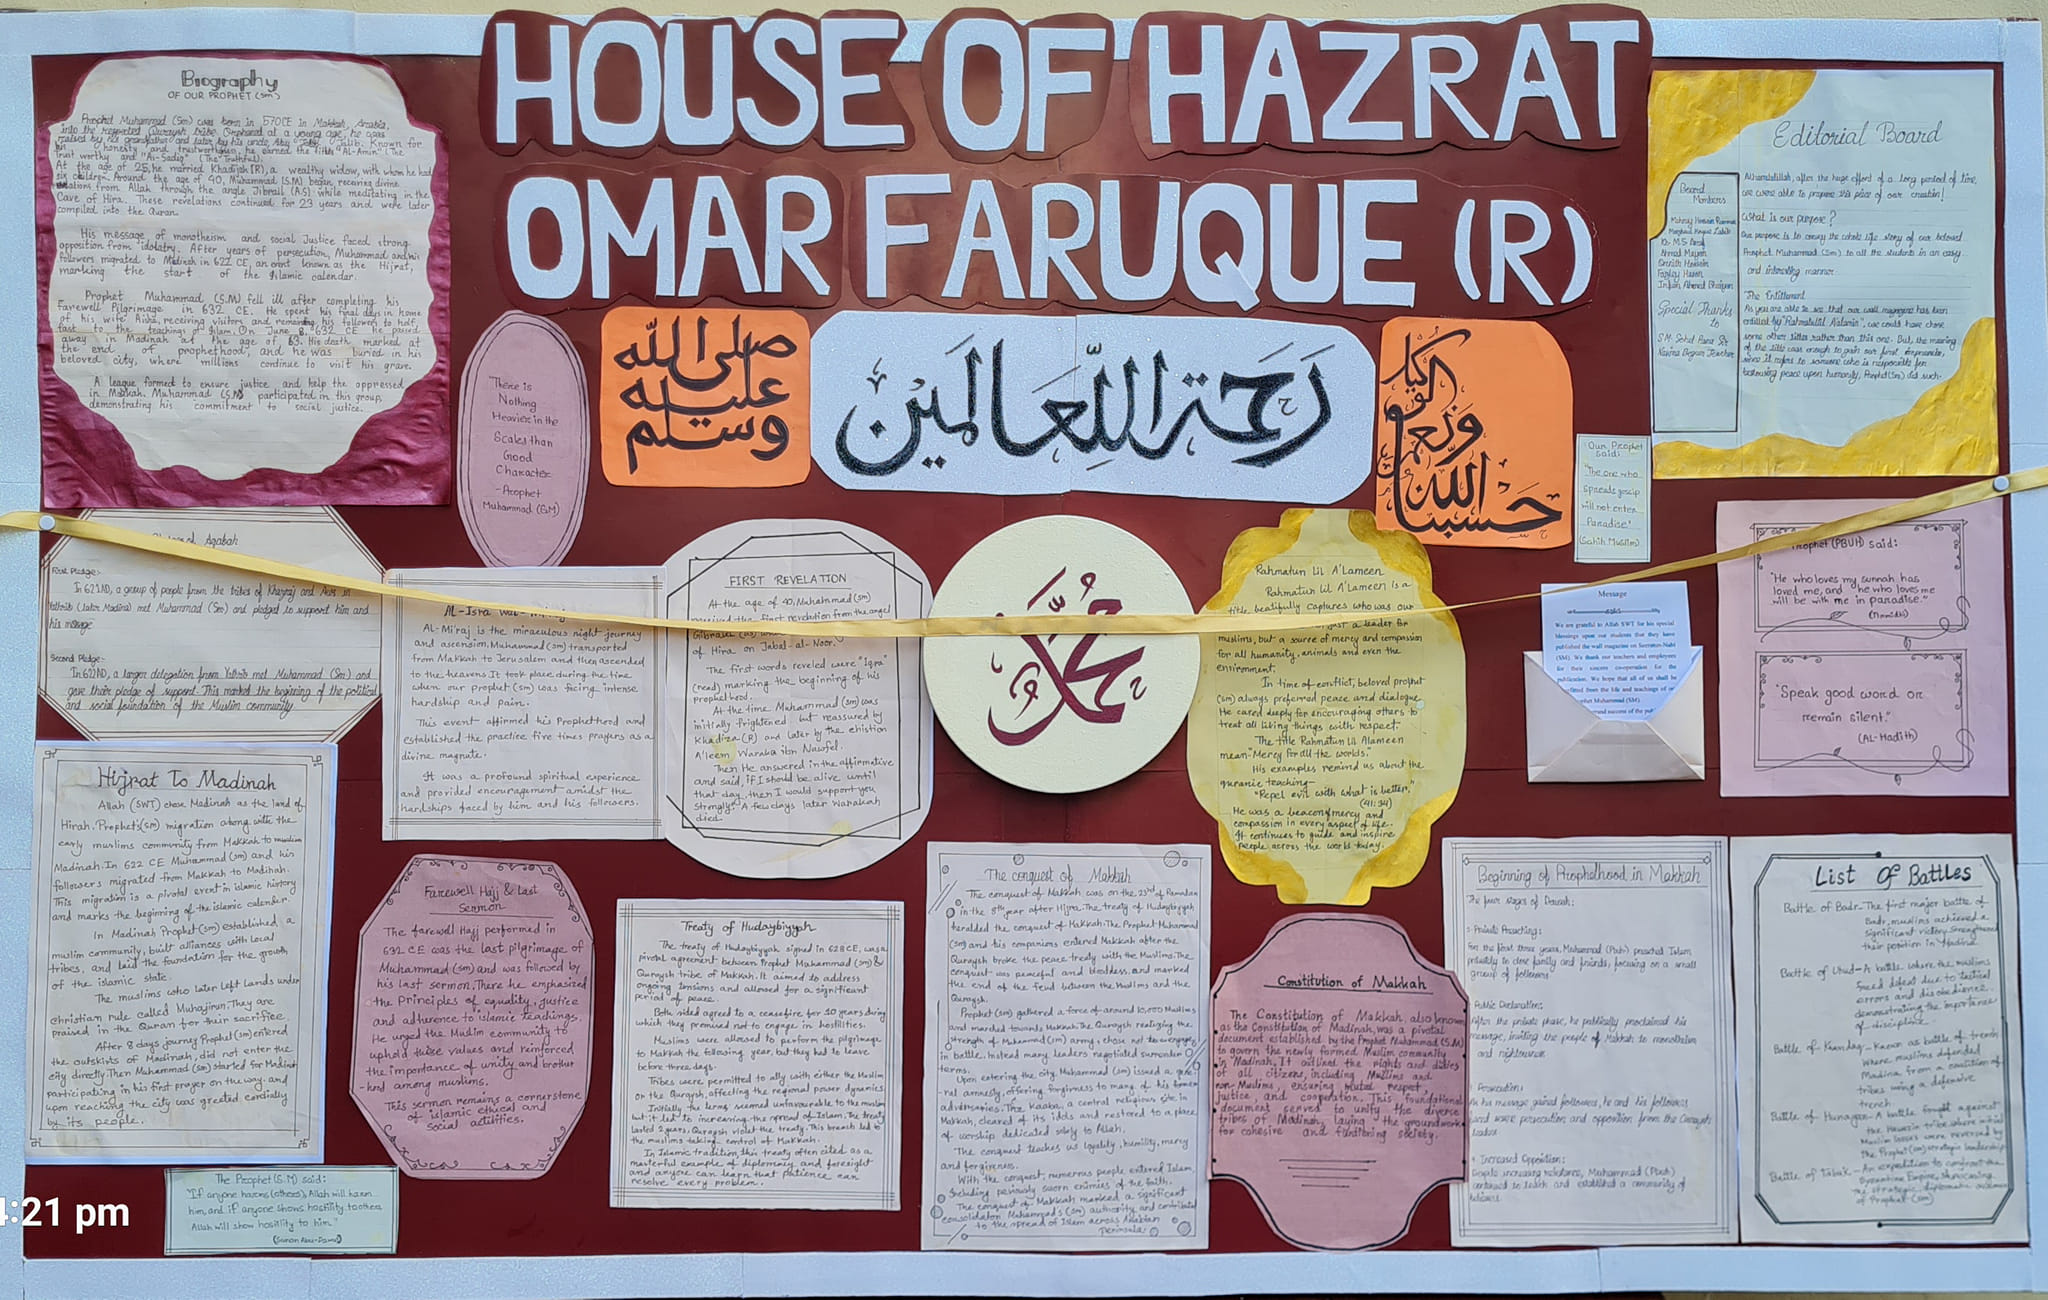 HOUSE OF HAZRAT
OMAR FARUQUE (R)
Biography
OF OUR PROPHET (sm)
Prophet Muhammad (Sm) was born in 570CE in Makkah, Arabia,
into the respected Quraysh tribe. Orphaned at a young age, he was
raised by his grandfather and later by his uncle, Abu Talib. Known for
his honesty and trustworthiness, he earned the titles "Al-Amin" (The
trust worthy and "As-Sadiq" (The Truthful).
At the age of 25, he married Khadijah (R), a wealthy widow, with whom he had
six children. Around the age of 40, Muhammad (S.M) began receiving divine
through the angle Jibrail (A.S) while meditating in the
Cave of Hira. These revelations continued for 23 years and were later
compiled into the Quran.
His message of monotheism and social Justice faced strong
opposition from idolatry. After years of persecution, Muhammad and his
followers migrated to Madinah in 622 CE, an event known as the Hijrat,
marking the start of the Islamic calendar.
Prophet Muhammad (S.M) fell ill after completing his
Farewell Pilgrimage in 632 CE. He spent his final days in home
of his wife Aisha, receiving visitors and his followers to
fast to the teachings of Islam. On June 8, 632 CE he passed
away in Madinah at the age of 63. His death marked at
the end of prophethood, and he was buried in his
beloved city, where millions continue to visit his grave.
A league formed to ensure justice and help the oppressed
in Makkah. Muhammad (S.M) participated in this group,
demonstrating his commitment to social justice.
There is
Nothing
Heavier in the
Scales than
Good
Character
-Prophet
Muhammad (SM)
صلى الله
عليه
وسلم
رَحْمَةً لِّلْعَالَمِيْن
حسبنا الله ونعم الوكيل
Our Prophet
said:
"The one who
spreads gossip
will not enter
Paradise"
(Sahih Muslim)
Editorial Board
Alhamdulillah, after the huge effort of a long period of time,
we were able to prepare this piece of our creation!
What is our purpose?
Our purpose is to convey the whole life story of our beloved
Prophet Muhammad (Sm) to all the students in an easy
and interesting manner.
The Entitlement
As you are able to see that our wall magazine has been
entitled by "Rahmatulil A'alamin", we could have chose
some other titles rather than this one. But, the meaning
of the title was enough to gain our first
since it refers to someone who is responsible for
bestowing peace upon humanity, Prophet (Sm) did such.
Board
Members
Special Thanks
to
First Pledge:-
In 621AD, a group of people from the tribes of Khazraj and Aws in
Yathrib (later Madina) met Muhammad (Sm) and pledged to support him and
his message
Second Pledge:-
In 622AD, a larger delegation from Yathrib met Muhammad (Sm) and
gave their pledge of support. This marked the beginning of the political
and social foundation of the Muslim community.
Al-Isra
AL-Mi'raj is the miraculous night journey
and ascension, Muhammad (sm) transported
from Makkah to Jerusalem and then ascended
to the heavens. It took place during the time
when our prophet (sm) was facing intense
hardship and pain.
This event affirmed his Prophethood and
established the practice five times prayers as a
divine magnate.
It was a profound spiritual experience
and provided encouragement amidst the
hardships faced by him and his followers.
FIRST REVELATION
At the age of 40, Muhammad (sm)
received the first revelation from the angel
of Hira on Jabal-al-Noor.
The first words reveled were "Iqra"
(read) marking the beginning of his
prophethood.
At the time Muhammad (sm) was
initially frightened but reassured by
Khadiza (R) and later by the christion
A'leem Waraka ibn Nawfel.
Then He answered in the affirmative
and said, if I should be alive until
that day, then I would support you
strongly. A few days later Warakah
died.
محمد
Rahmatun Lil A'Lameen
Rahmatun Lil A'Lameen is a
title, beautifully captures who was our
just a leader for
muslims, but a source of mercy and compassion
for all humanity, animals and even the
envirnment.
In time of conflict, beloved prophet
(sm) always preferred peace and dialogue.
He cared deeply for encouraging others to
treat all living things with respect.
The title Rahmatun Lil Alameen
mean "Mercy for all the worlds."
His examples remind us about the
quranic teaching-
"Repel evil with what is better."
(41:34)
He was a beacon of mercy and
compassion in every aspect of life.
It continues to guide and inspire
people across the world today.
Message
We are grateful to Allah SWT for his special
blessings upon our students that they have
published the wall magazine on Seeratun-Nabi
(SM). We thank our teachers and employees
for their sincere co-operation for the
publication. We hope that all of us shall be
from the life and teachings of
Muhammad (SM)
and success of the
Prophet (PBUH) said:
"He who loves my sunnah has
loved me, and he who loves me
will be with me in paradise."
(Tirmidhi)
"Speak good word or
remain silent."
(AL-Hadith)
Hijrat To Madinah
Allah (SWT) chose Madinah as the land of
Hirah. Prophet's (sm) migration along with the
early muslims community from Makkah to muslim
Madinah. In 622 CE Muhammad (sm) and his
followers migrated from Makkah to Madinah.
This migration is a pivotal event in islamic history
and marks the beginning of the islamic calender.
In Madinah Prophet (sm) established a
muslim community, built alliances with local
tribes, and laid the foundation for the growth
of the islamic state.
The muslims who later left lands under
christian rule called Muhajirun. They are
praised in the Quran for their sacrifice.
After 8 days journey Prophet (sm) entered
the outskirts of Madinah, did not enter the
city directly. Then Muhammad (sm) started for Madinah
participating in his first prayer on the way. and
upon reaching the city was greeted cordially
by its people.
Farewell Hajj & Last
Sermon
The farewell Hajj performed in
632 CE was the last pilgrimage of
Muhammad (sm) and was followed by
his last sermon. There he emphasized
the principles of equality, justice
and adherence to islamic teachings.
He urged the Muslim community to
uphold these values and reinforced
the importance of unity and brother
-hood among muslims.
This sermon remains a cornerstone
of islamic ethical and
social actiities.
Treaty of Hudaybiyyah
The treaty of Hudaybiyyah signed in 628 CE, was a
pivotal agreement between Prophet Muhammad (sm) &
Quraysh tribe of Makkah. It aimed to address
ongoing tensions and allowed for a significant
period of peace.
Both sided agreed to a ceasefire for 10 years during
which they promised not to engage in hostilities.
Muslims were allowed to perform the pilgrimage
to Makkah the following year, but they had to leave
before three days.
Tribes were permitted to ally with either the Muslim
or the Quraysh, affecting the regional power dynamics.
Initially the terms seemed unfavourable to the muslim
but it led to increasing the spread of Islam. The treaty
lasted 2 years. Quraysh violet the treaty. This breach led to
the muslims taking control of Makkah.
In Islamic tradition, this treaty often cited as a
masterful example of diplomacy and foresight
and anyone can learn that patience can
resolve every problem.
The conquest of Makkah
The conquest of Makkah was on the 23rd of Ramadan
in the 8th year after Hijra. The treaty of Hudaybiyyah
heralded the conquest of Makkah. The Prophet Muhammad
(sm) and his companions entered Makkah after the
Quraysh broke the peace treaty with the Muslims. The
conquest was peaceful and bloodless, and marked
the end of the feud between the Muslims and the
Quraysh.
Prophet (sm) gathered a force of around 10,000 Muslims
and marched towards Makkah. The Quraysh realizing the
strength of Muhammad (sm) army, chose not to engage
in battle. Instead many leaders negotiated surrender
terms.
Upon entering the city, Muhammad (sm) issued a gene-
ral amnesty, offering forgivness to many of his former
adversaries. The Kaaba, a central religious site in
Makkah, cleared of its idols and restored to a place
of worship dedicated solely to Allah.
The conquest teaches us loyality, humility, mercy
and forgivness.
With the conquest, numerous people entered Islam,
including previously sworn enimies of the faith.
The conquest of Makkah marked a significant
consolidaton Muhammad's (sm) authority and contributed
to the spread of Islam across Arabian
Peninsula.
Constitution of Makkah
The Constitution of Makkah, also known
as the Constitution of Madinah, was a pivotal
document established by the Prophet Muhammad (S.M)
to govern the newly formed Muslim community
in Madinah. It outlined the rights and duties
of all citizens, including Muslims and
non-Muslims, ensuring mutual respect,
justice, and cooperation. This foundational
document served to unify the diverse
tribes of Madinah, laying the groundwork
for cohesive and functioning society.
Beginning of Prophethood in Makkah
The four stages of Dawah:
Private Preaching:
For the first three years, Muhammad (Pbuh) preached Islam
privately to close family and friends, focusing on a small
group of followers
Public Declaration:
After the private phase, he publically proclaimed his
message, inviting the people of Makkah to monotheism
and righteousness
Persecution:
As his message gained followers, he and his followers
faced severe persecution and opposition from the Quraysh
leaders
4 Increased Opposition:
Despite increasing resistance, Muhammad (Pbuh)
continued to teach and established a community of
believers
List Of Battles
Battle of Badr-The first major battle of
Badr, muslims achieved a
significant victory strengthened
their position in Madina.
Battle of Uhud-A battle where the muslims
faced defeat due to tactical
errors and disobedience.
demonstrating the importance
of discipline.
Battle of Khandaq- Known as battle of trench
where muslims defended
Madina from a coalition of
tribes using a defensive
trench.
Battle of Hunayan-A battle fought against
the Hawazin tribe, where initial
Muslim losses were reversed by
the Prophet (sm) strategic leadership
Battle of Tabuk-An expedition to confront the
Byzantine Empire, showcasing
the strategic, diplomatic
of Prophet (sm)
The Prophet (S.M) said:
"If anyone harms (others), Allah will harm
him, and if anyone shows hostility to others,
Allah will show hostility to him."
(Sunan Abu-Dawud)
4:21 pm